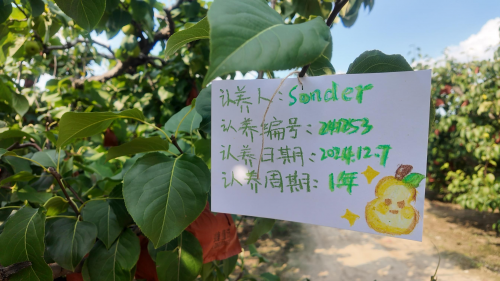 认养人：Sonder
认养编号：241253
认养日期：2024.12.7
认养周期：1年